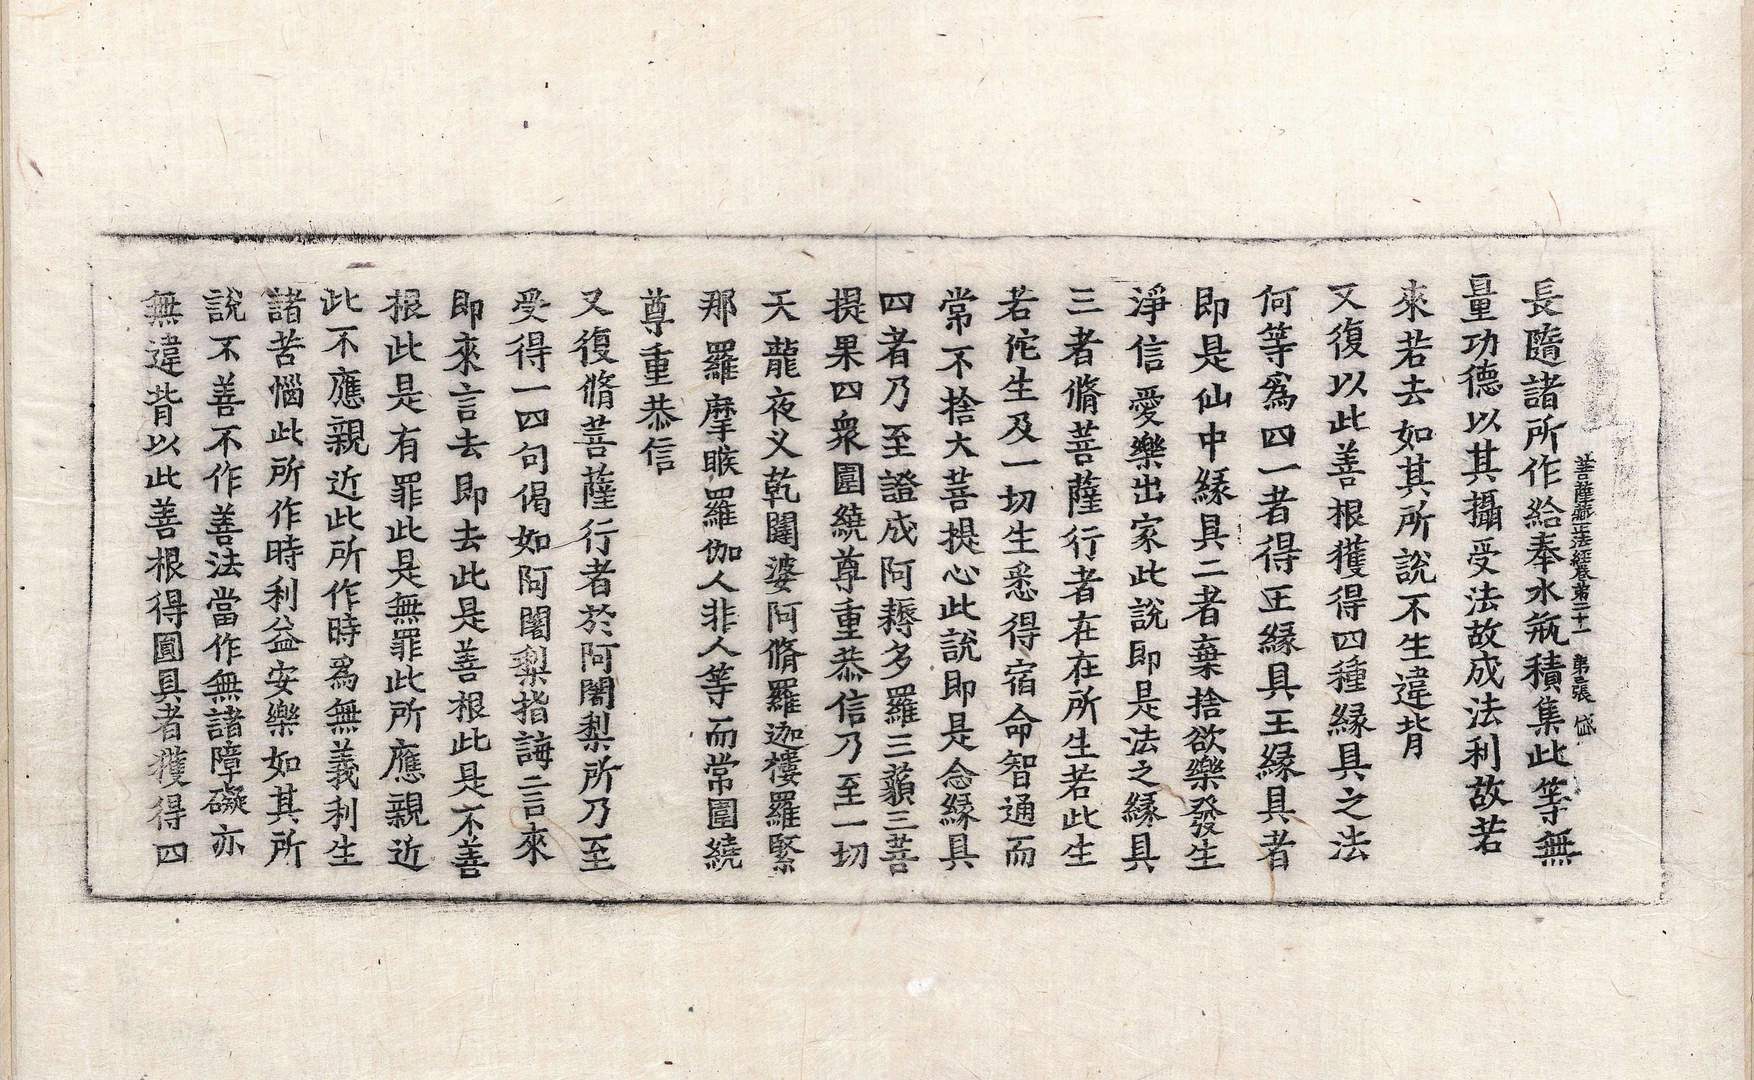 菩薩藏正法經卷第二十一 第三張 岱
長隨諸所作給奉水瓶積集此等無
量功德以其攝受法故成法利故若
來若去如其所說不生違背
又復以此善根獲得四種緣具之法
何等爲四一者得王緣具王緣具者
即是仙中緣具二者棄捨欲樂發生
淨信愛樂出家此說即是法之緣具
三者脩菩薩行者在在所生若此生
若佗生及一切生悉得宿命智通而
常不捨大菩提心此說即是念緣具
四者乃至證成阿耨多羅三藐三菩
提果四衆圍繞尊重恭信乃至一切
天龍夜叉乾闥婆阿脩羅迦樓羅緊
那羅摩睺羅伽人非人等而常圍繞
尊重恭信
又復脩菩薩行者於阿闍梨所乃至
受得一四句偈如阿闍梨指誨言來
即來言去即去此是善根此是不善
根此是有罪此是無罪此所應親近
此不應親近此所作時爲無義利生
諸苦惱此所作時利益安樂如其所
說不善不作善法當作無諸障礙亦
無違背以此善根得圓具者獲得四